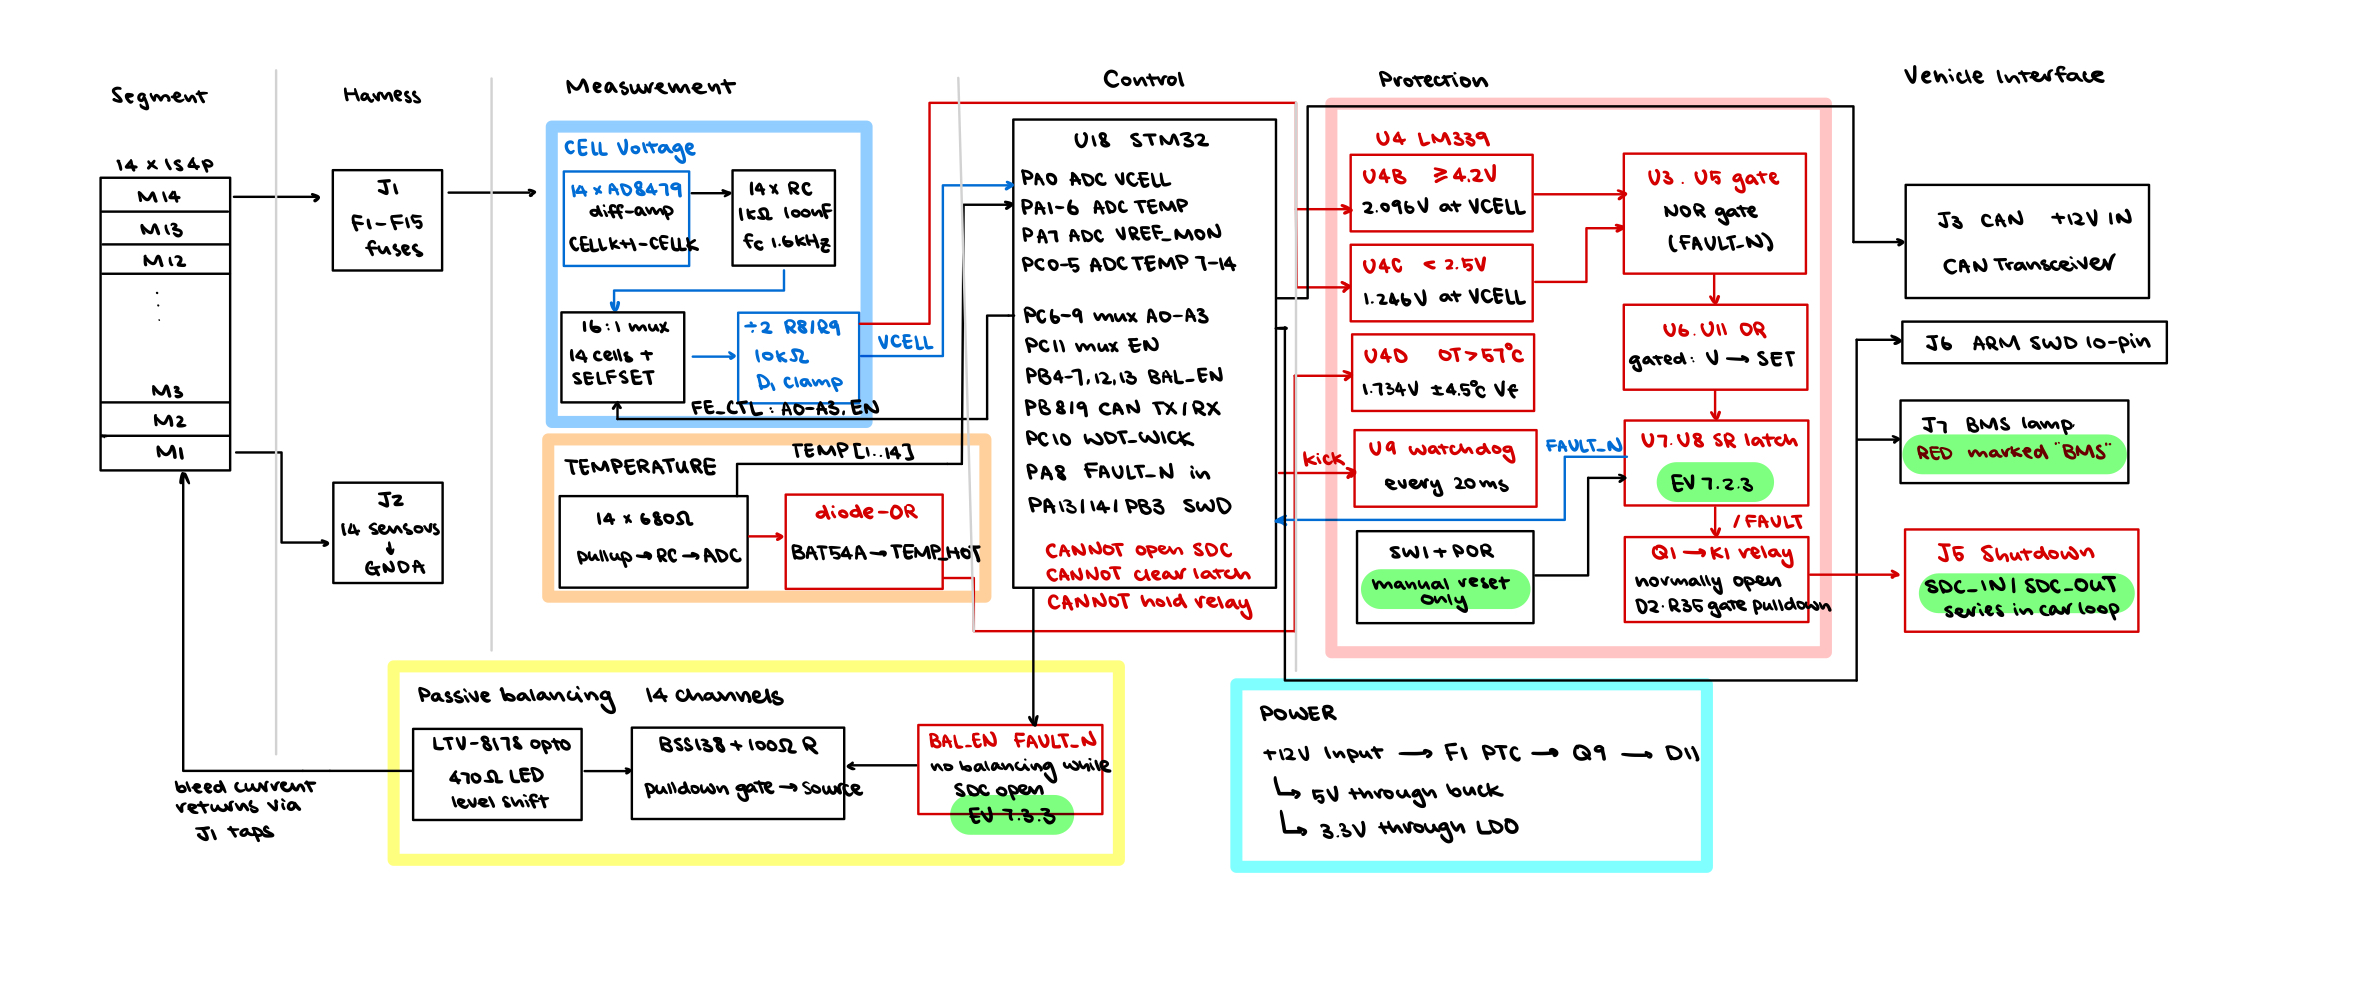 Segment
Harness
Measurement
Control
Protection
Vehicle Interface
14 x 1s4p
M14
M13
M12
M3
M2
M1
J1
F1-F15
fuses
J2
14 sensors
GNDA
CELL Voltage
14 x AD8479
diff-amp
CELLK+1-CELLK
14 x RC
1kΩ 100nF
fc 1.6kHz
16:1 mux
14 cells +
SELFSET
÷2 R8/R9
10kΩ
D1 clamp
VCELL
FE_CTL : A0-A3, EN
TEMPERATURE
TEMP [1..14]
14 x 680Ω
pullup → RC → ADC
diode-OR
BAT54A → TEMP_HOT
U18 STM32
PA0 ADC VCELL
PA1-6 ADC TEMP
PA7 ADC VREF_MON
PC0-5 ADC TEMP 7-14
PC6-9 mux A0-A3
PC11 mux EN
PB4-7,12,13 BAL_EN
PB8/9 CAN TX/RX
PC10 WDT_WICK
PA8 FAULT_N in
PA13/14/PB3 SWD
CANNOT open SDC
CANNOT clear latch
CANNOT hold relay
U4 LM339
U4B ≥4.2V
2.096V at VCELL
U4C < 2.5V
1.246V at VCELL
U4D OT>57°C
1.734V ±4.5°C Vf
kick
U9 watchdog
every 20ms
FAULT_N
SW1 + POR
manual reset
only
U3. U5 gate
NOR gate
(FAULT_N)
U6. U11 OR
gated: V → SET
U7. U8 SR latch
EV 7.2.3
/FAULT
Q1 → K1 relay
normally open
D2.R35 gate pulldown
J3 CAN +12V IN
CAN Transceiver
J6 ARM SWD 10-pin
J7 BMS lamp
RED marked "BMS"
J5 Shutdown
SDC_IN/SDC_OUT
series in car loop
Passive balancing 14 channels
LTV-817S opto
470Ω LED
level shift
BSS138 + 100Ω R
pulldown gate → source
BAL_EN FAULT_N
no balancing while
SDC open
EV 7.3.3
bleed current
returns via
J1 taps
POWER
+12V Input → F1 PTC → Q9 → D11
↳ 5V through buck
↳ 3.3V through LDO